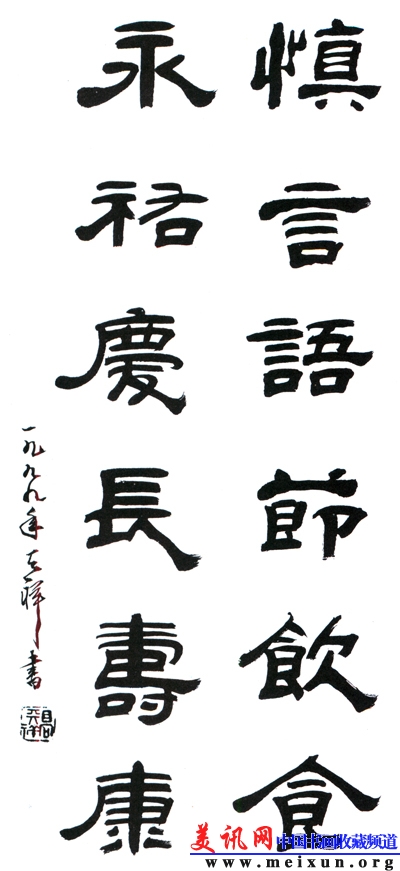 慎言語節飲食
永祐慶長壽康
一九九九年吉祥书
美讯网 中国书画收藏频道
www.meixun.org